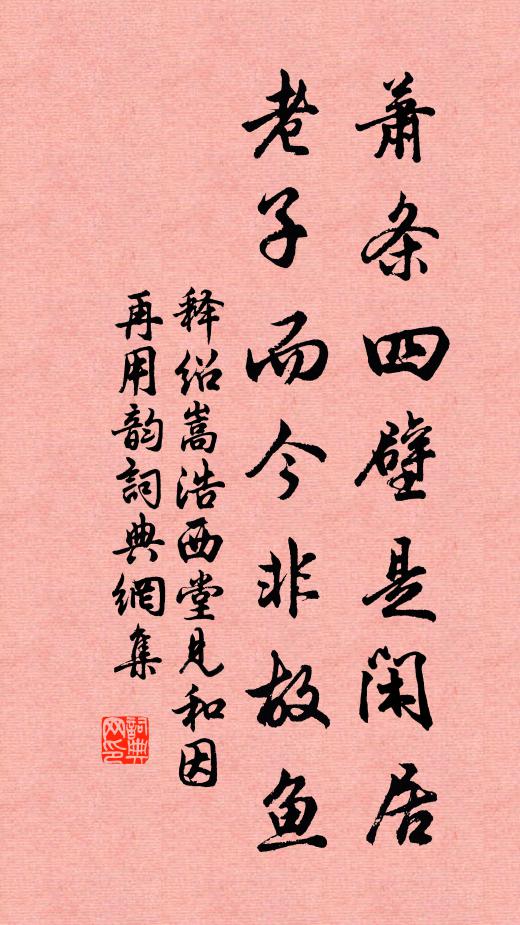 萧条四壁是闲居
老子而今非故鱼
释绍嵩浩西堂见和因
再用韵詞典網集
詞典
网印